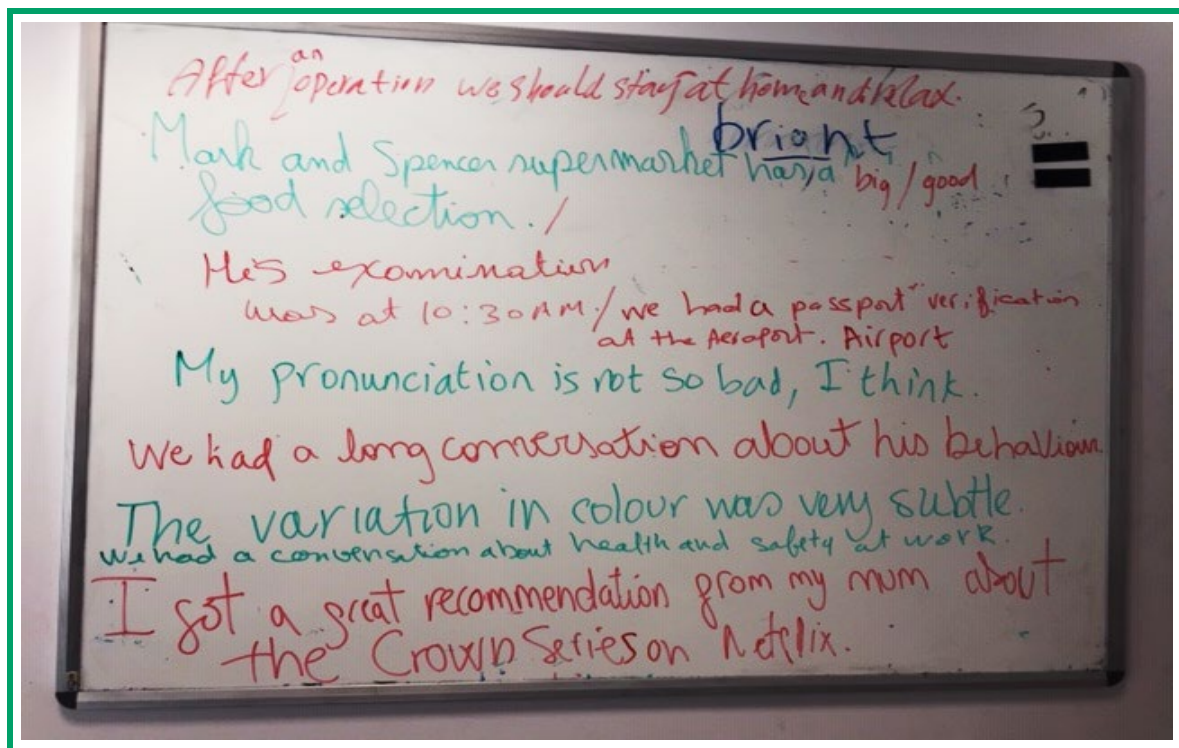 an
After operation we should stay at home and relax.
bright
Mark and Spencer supermarket has a big / good
food selection. /
His examination
was at 10:30 AM. / we had a passport verification
at the Aeroport. Airport
My pronunciation is not so bad, I think.
We had a long conversation about his behaviour.
The variation in colour was very subtle.
We had a conversation about health and safety at work.
I got a great recommendation from my mum about
the Crown Series on Netflix.